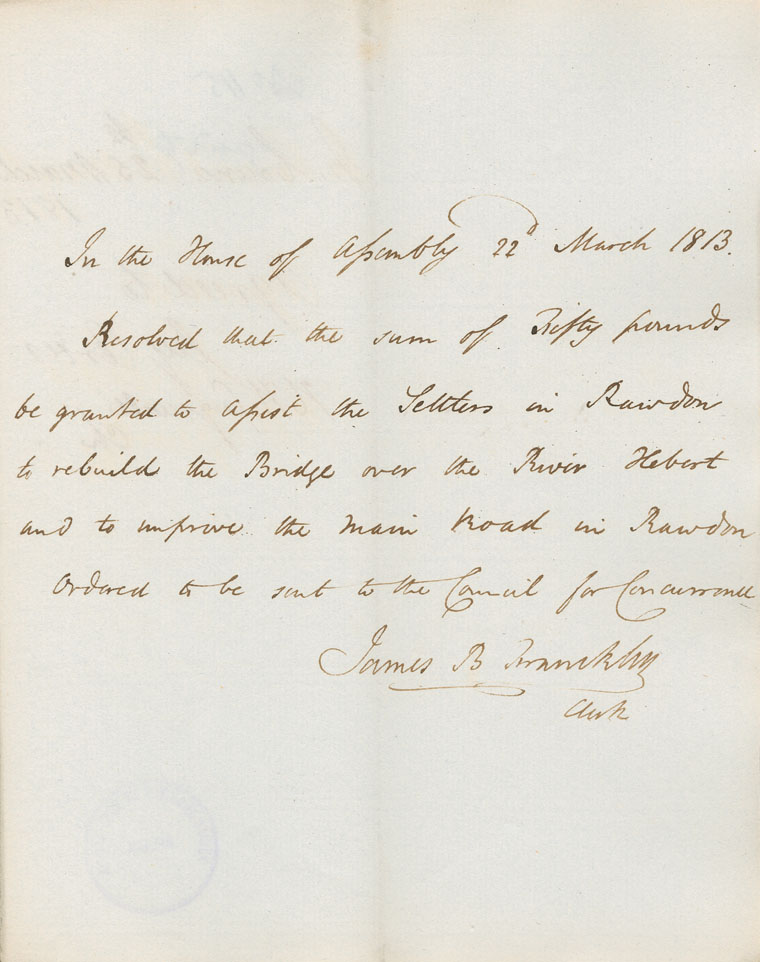 In the House of Assembly 22d March 1813.
Resolved that the sum of Fifty pounds
be granted to Assist the Settlers in Rawdon
to rebuild the Bridge over the River Hebert
and to improve the Main Road in Rawdon
Ordered to be sent to the Council for Concurrence
James B Franckklin
Clerk